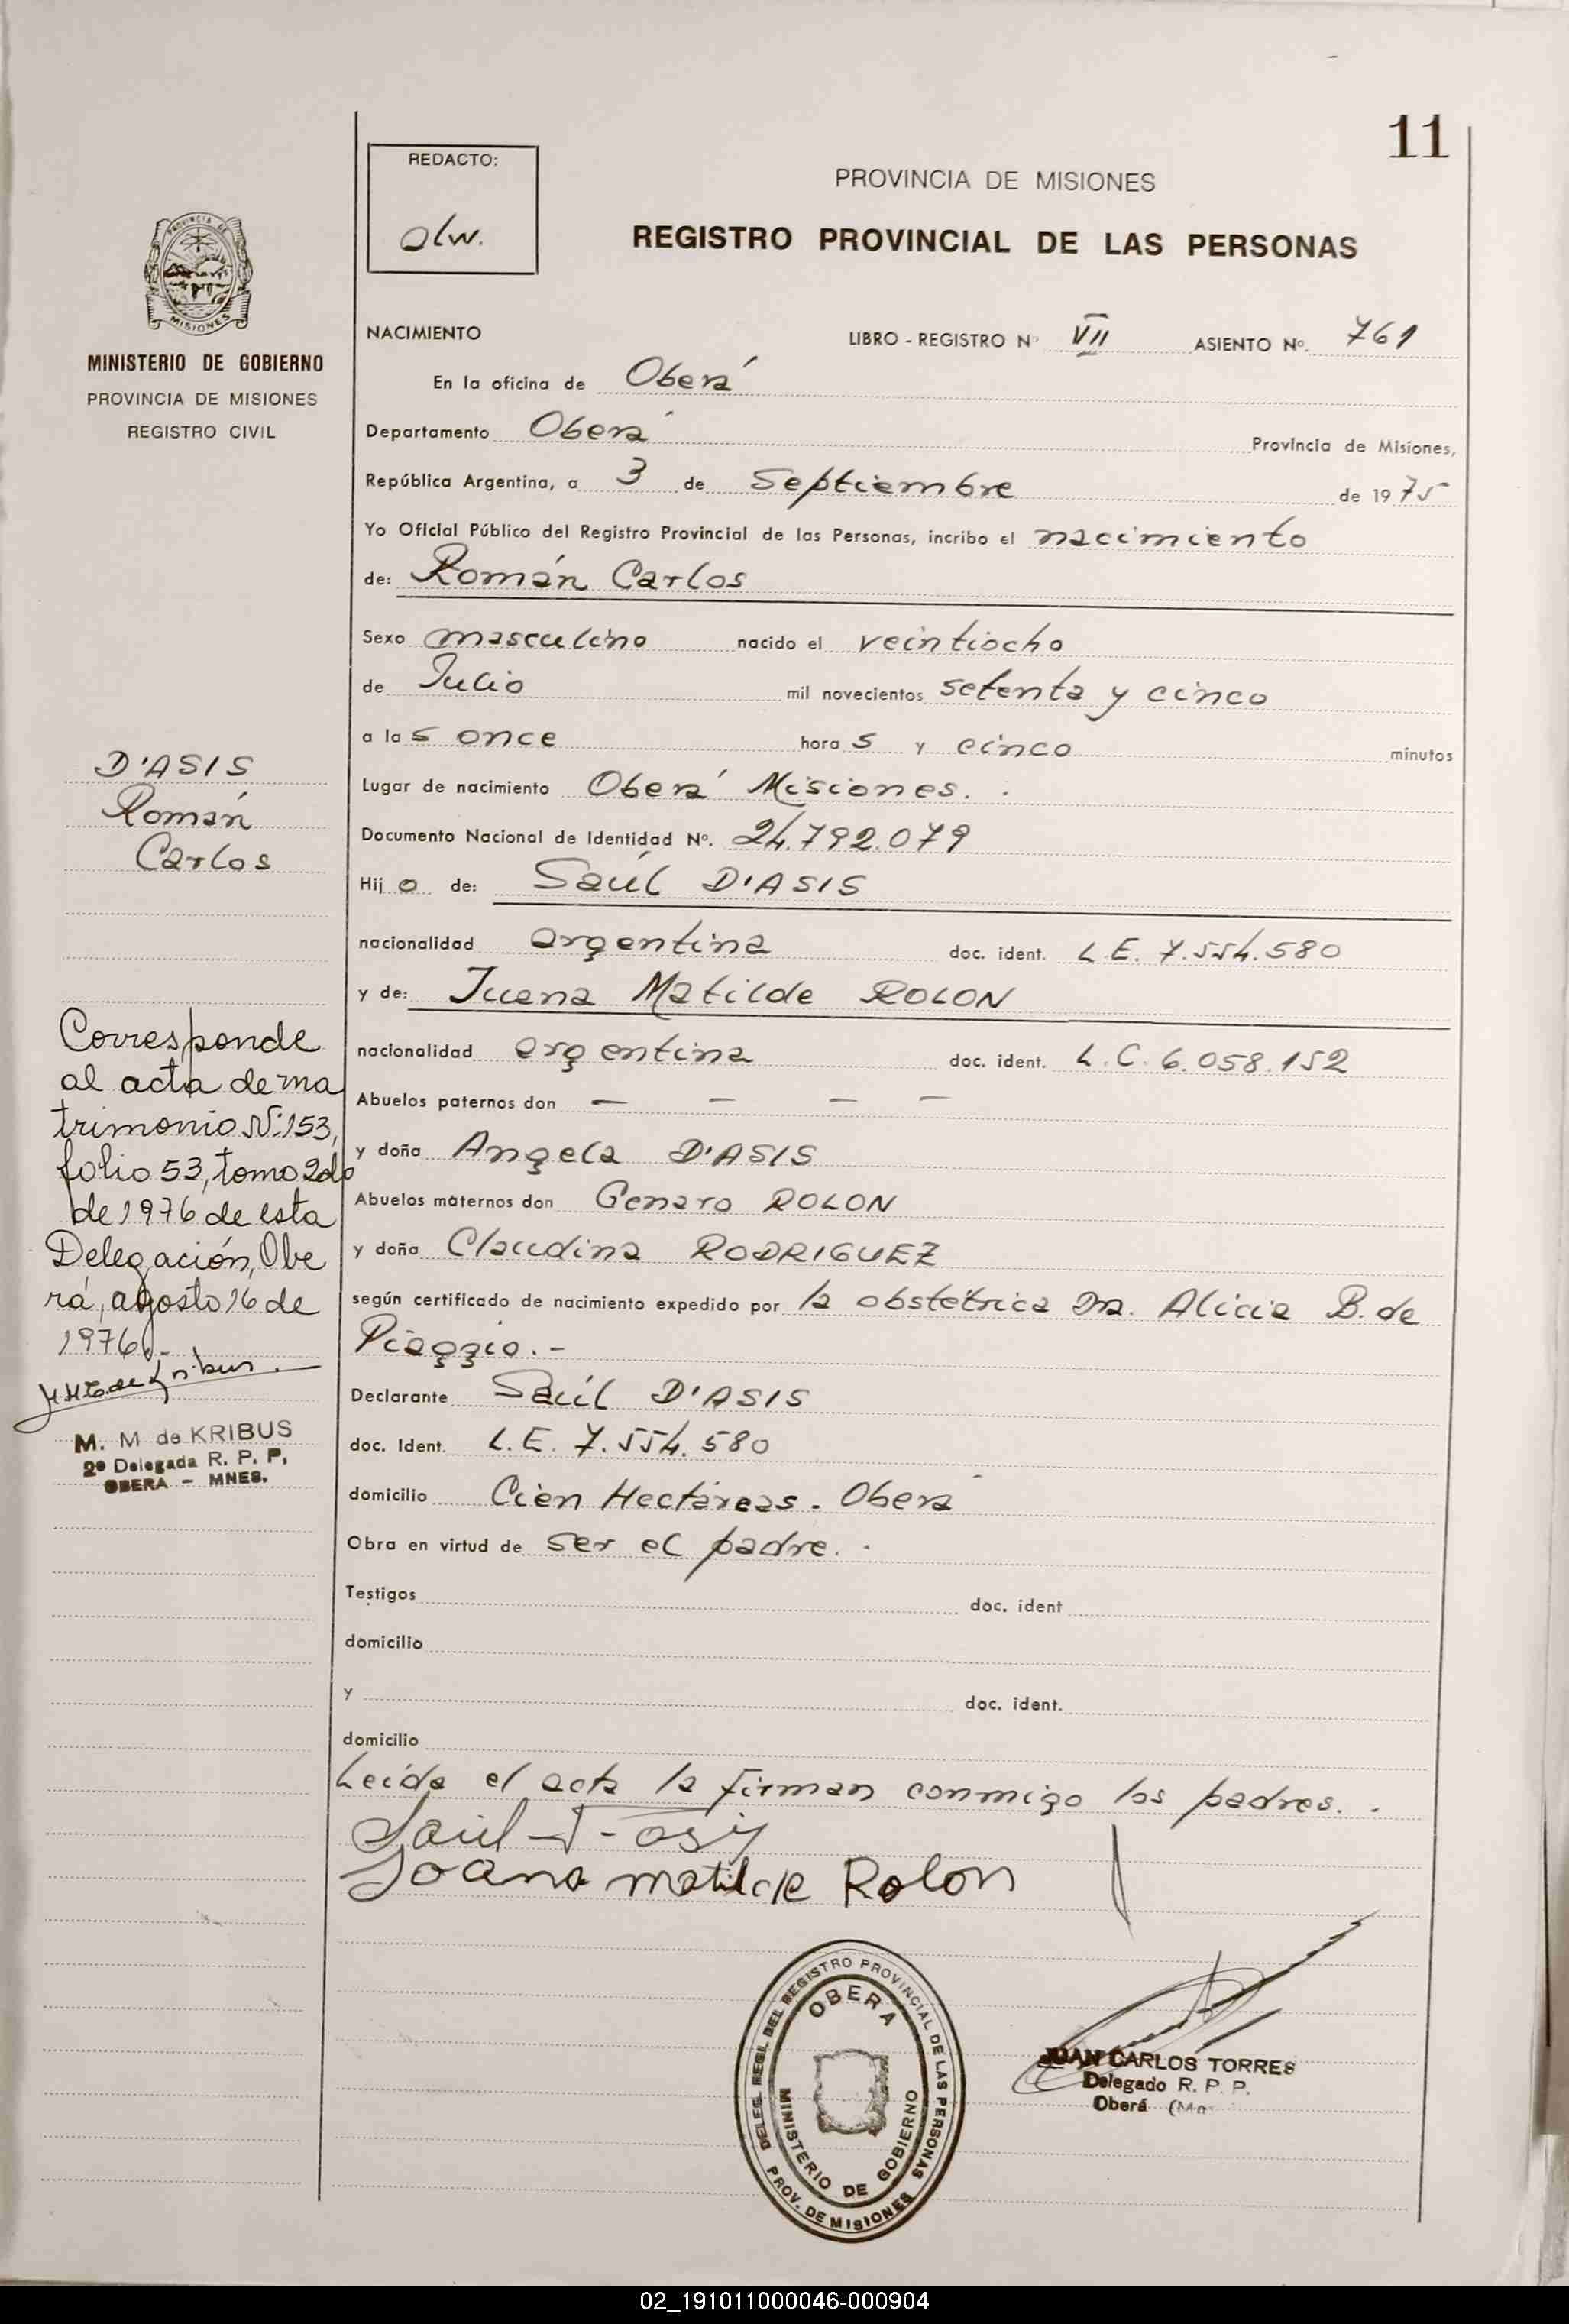 11
REDACTO:
olw.
PROVINCIA DE MISIONES
REGISTRO PROVINCIAL DE LAS PERSONAS
PROVINCIA DE
MISIONES
MINISTERIO DE GOBIERNO
PROVINCIA DE MISIONES
REGISTRO CIVIL
D'ASIS
Román
Carlos
Corresponde
al acta de ma
trimonio Nº 153,
folio 53, tomo 2do
de 1976 de esta
Delegación, Obe
rá, agosto 16 de
1976.-
M. M de KRIBUS
2º Delegada R. P. P.
OBERA - MNES.
NACIMIENTO LIBRO - REGISTRO Nº VII ASIENTO Nº. 761
En la oficina de Oberá
Departamento Oberá Provincia de Misiones,
República Argentina, a 3 de Septiembre de 1975
Yo Oficial Público del Registro Provincial de las Personas, incribo el nacimiento
de: Román Carlos
Sexo masculino nacido el veintiocho
de Julio mil novecientos setenta y cinco
a las once horas y cinco minutos
Lugar de nacimiento Oberá Misiones.
Documento Nacional de Identidad Nº. 24.792.079
Hijo de: Saúl D'ASIS
nacionalidad argentina doc. ident. L.E. 7.554.580
y de: Juana Matilde ROLON
nacionalidad argentina doc. ident. L.C. 6.058.152
Abuelos paternos don — — — —
y doña Angela D'ASIS
Abuelos maternos don Genaro ROLON
y doña Claudina RODRIGUEZ
según certificado de nacimiento expedido por la obstétrica Dra. Alicia B. de
Piaggio.-
Declarante Saúl D'ASIS
doc. Ident. L.E. 7.554.580
domicilio Cien Hectáreas - Oberá
Obra en virtud de ser el padre.
Testigos doc. ident
domicilio
y doc. ident.
domicilio
Leída el acta la firman conmigo los padres.
Joana matilde Rolon
DELEG. REGI. DEL REGISTRO PROVINCIAL DE LAS PERSONAS
OBERA
MINISTERIO DE GOBIERNO
PROV. DE MISIONES
JUAN CARLOS TORRES
Delegado R. P. P.
Oberá
02_191011000046-000904